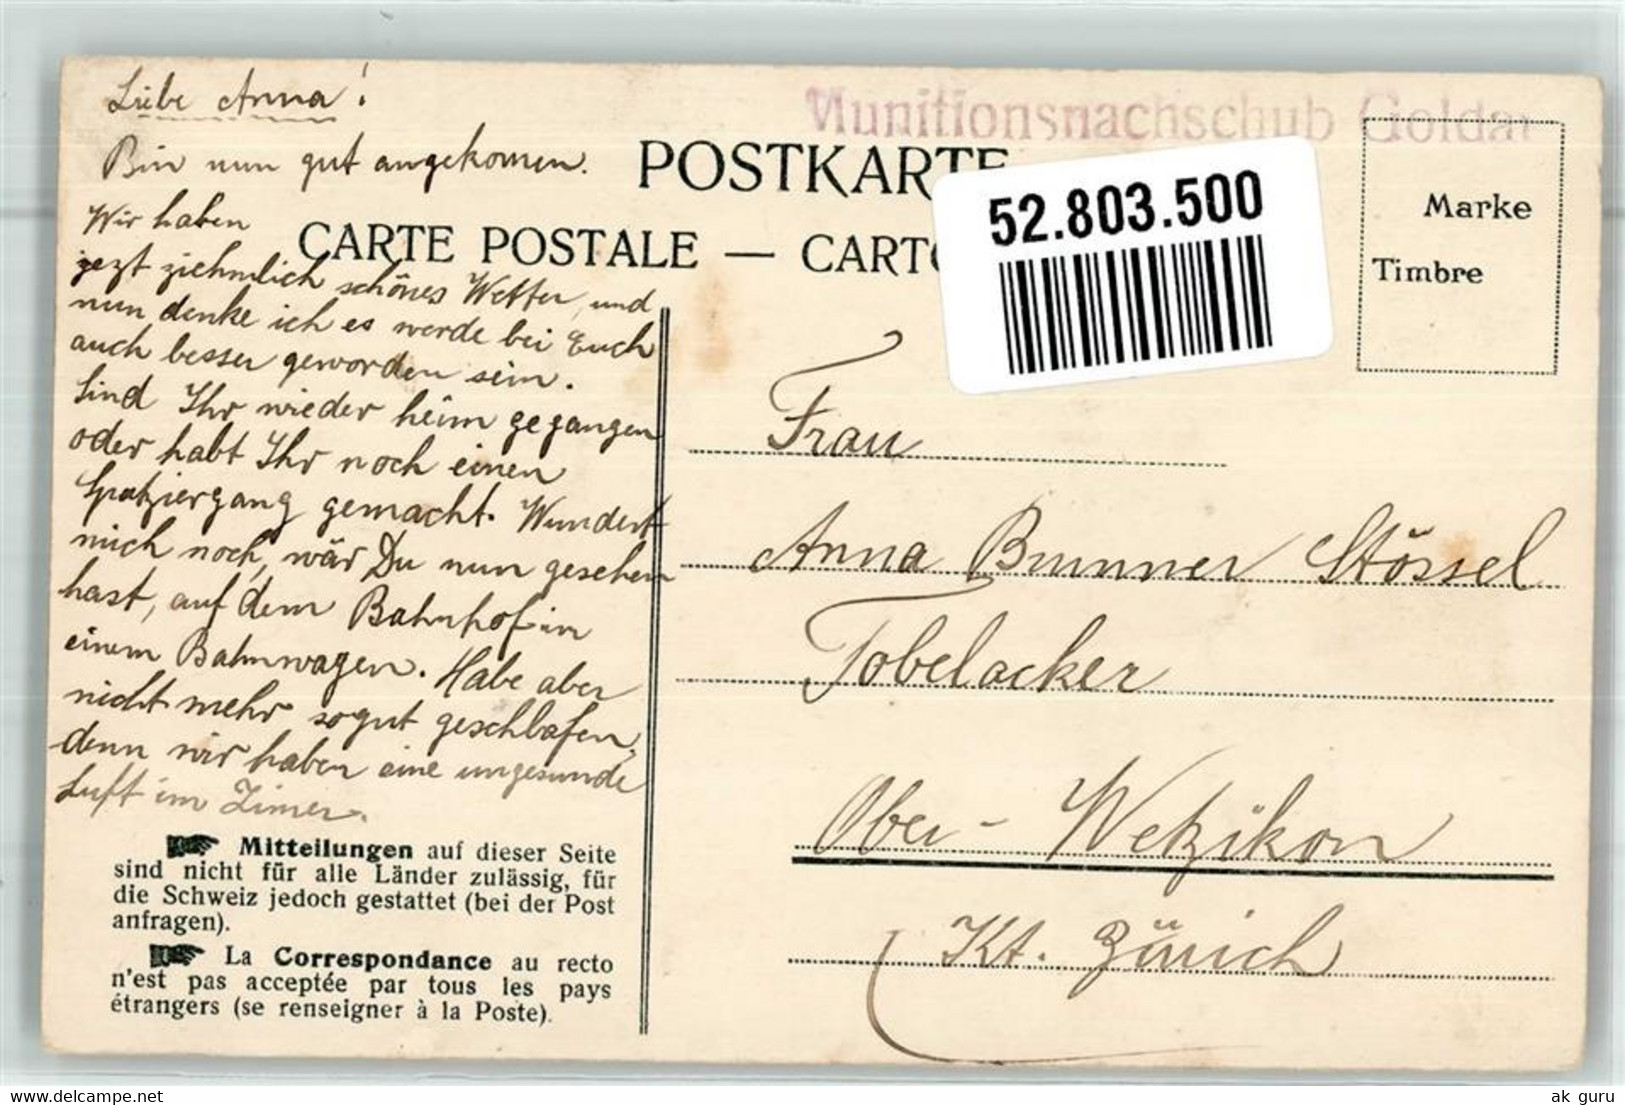 Liebe Anna!
Munitionsnachschub Goldau
Bin nun gut angekomen.
POSTKARTE
Wir haben
CARTE POSTALE — CARTO
52.803.500
Marke
Timbre
jezt ziehmlich schönes Wetter, und
nun denke ich es werde bei Euch
auch besser geworden sein.
Sind Ihr wieder heim gegangen
oder habt Ihr noch einen
Spatziergang gemacht. Wundert
mich noch, wär Du nun gesehen
hast, auf dem Bahnhof in
einem Bahnwagen. Habe aber
nicht mehr so gut geschlafen,
denn wir haben eine ungesunde
Luft im Zimer.
Frau
Anna Brunner Stössel
Tobelacker
Ober-Wetzikon
Kt. Zürich
Mitteilungen auf dieser Seite
sind nicht für alle Länder zulässig, für
die Schweiz jedoch gestattet (bei der Post
anfragen).
La Correspondance au recto
n'est pas acceptée par tous les pays
étrangers (se renseigner à la Poste).
www.delcampe.net
ak guru